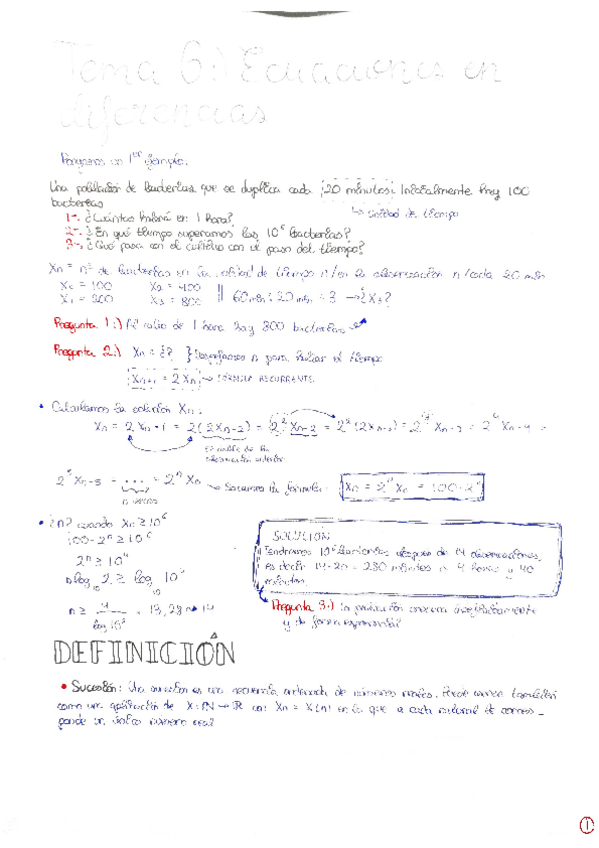 Tema 6:) Ecuaciones en
diferencias
Pongamos un 1er ejemplo.
Una población de bacterias que se duplica cada 20 minutos. Inicialmente hay 100
bacterias
↳ unidad de tiempo
1-. ¿Cuántas habrá en 1 hora?
2-. ¿En qué tiempo superamos las 10^6 bacterias?
3-. ¿Qué pasa con el cultivo con el paso del tiempo?
Xn = nº de bacterias en la unidad de tiempo n/en la observación n/cada 20 min
X0 = 100 X2 = 400
X1 = 200 X3 = 800 || 60 min : 20 min = 3 → ¿X3?
Pregunta 1:) Al cabo de 1 hora hay 800 bacterias
Pregunta 2:) Xn = ¿? } n para hallar el tiempo
Xn+1 = 2Xn → FÓRMULA RECURRENTE
• Calculamos la solución Xn:
Xn = 2Xn-1 = 2(2Xn-2) = 2^2 Xn-2 = 2^2 (2Xn-3) = 2^3 Xn-3 = 2^4 Xn-4 =
2^5 Xn-5 = ... = 2^n X0 → Sacamos la fórmula: Xn = 2^n X0 = 100·2^n
n veces
• ¿n? cuando Xn ≥ 10^6
100·2^n ≥ 10^6
2^n ≥ 10^4
n log10 2 ≥ log10 10^4
n ≥ 4 / log10 2 = 13,28 → 14
SOLUCIÓN
Tendremos 10^6 bacterias después de 14 observaciones,
es decir 14·20 = 280 minutos = 4 horas y 40
minutos.
Pregunta 3:) La población crecerá
y de forma exponencial
DEFINICIÓN
• Sucesión: Una sucesión es una secuencia ordenada de números reales. Puede verse también
como una aplicación de X: ℕ → ℝ con Xn = X(n) en la que a cada natural le corres-
ponde un único número real
1